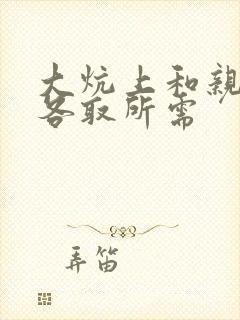 大炕上和親
各取所需
弄笛